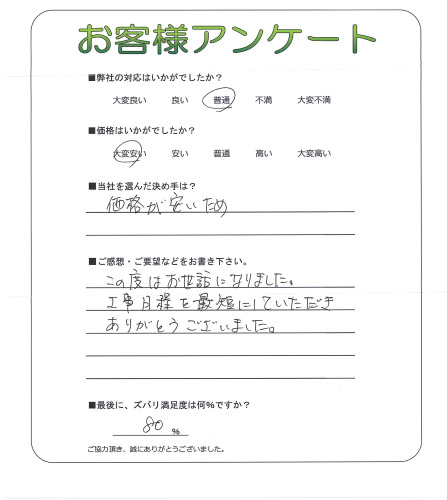 お客様アンケート
■弊社の対応はいかがでしたか？
大変良い 良い 普通 不満 大変不満
■価格はいかがでしたか？
大変安い 安い 普通 高い 大変高い
■当社を選んだ決め手は？
価格が安いため
■ご感想・ご要望などをお書き下さい。
この度はお世話になりました。
工事日程を最短にしていただき
ありがとうございました。
■最後に、ズバリ満足度は何%ですか？
80 %
ご協力頂き、誠にありがとうございました。